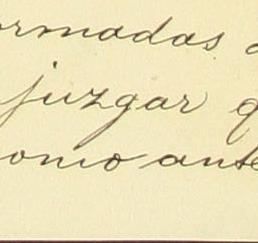 ormadas a
juzgar q
omo ante